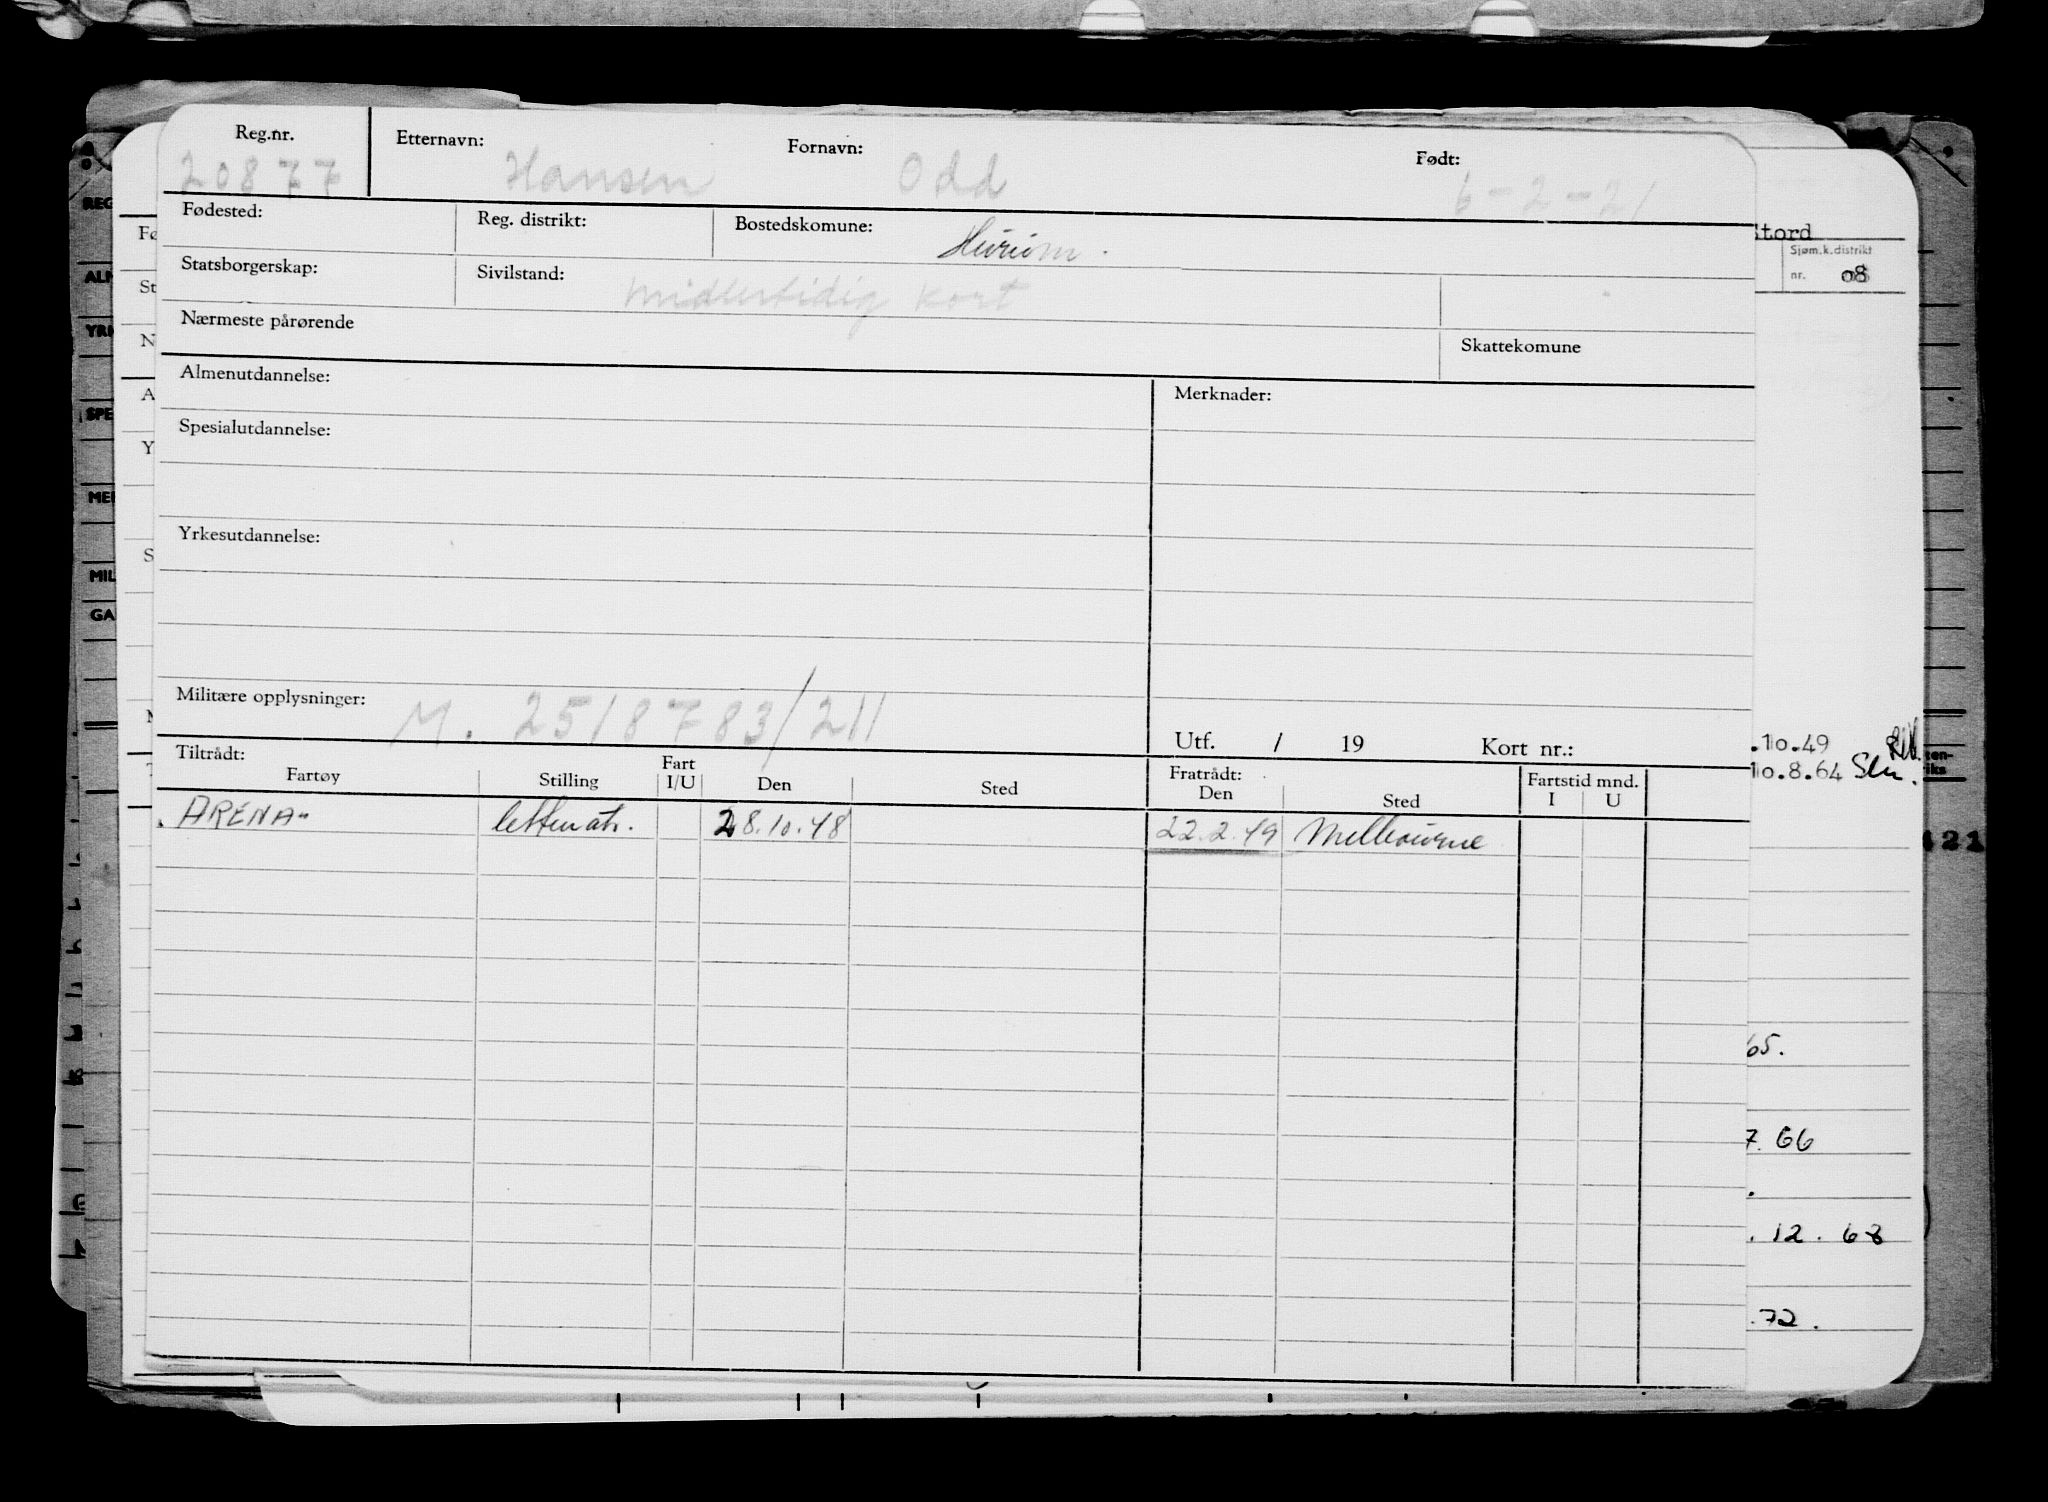 Reg.nr. Etternavn: Fornavn: Født:
20877 Hansen Odd 6-2-21
Fødested: Reg. distrikt: Bostedskomune: Hurum.
Stord
Sjøm.k.distrikt
nr. 08
Statsborgerskap: Sivilstand: midlertidig kort
Nærmeste pårørende Skattekomune
Almenutdannelse: Merknader:
Spesialutdannelse:
Yrkesutdannelse:
Militære opplysninger: M. 2518783/211
Utf. / 19 Kort nr.:
.10.49
10.8.64
Tiltrådt: Fratrådt: Fartstid mnd.
Fartøy Stilling Fart I/U Den Sted Den Sted I U
"ARENA" lettmatr. 28.10.48 22.2.49 Melbourne
421
65.
7.66
.12.68
.72.